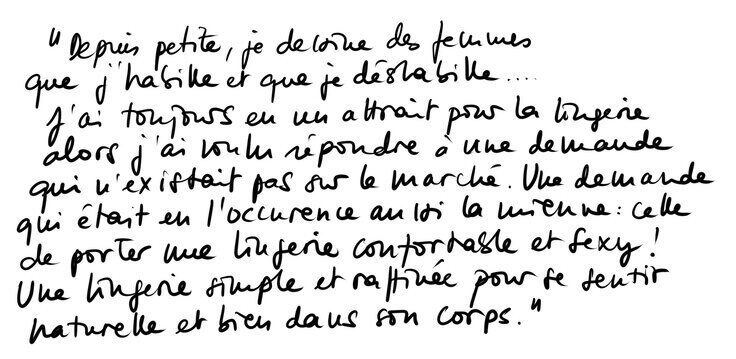 "Depuis petite, je dessine des femmes
que j'habille et que je déshabille....
J'ai toujours eu un attrait pour la lingerie
alors j'ai voulu répondre à une demande
qui n'existait pas sur le marché. Une demande
qui était en l'occurence aussi la mienne : celle
de porter une lingerie confortable et sexy !
Une lingerie simple et raffinée pour se sentir
naturelle et bien dans son corps."